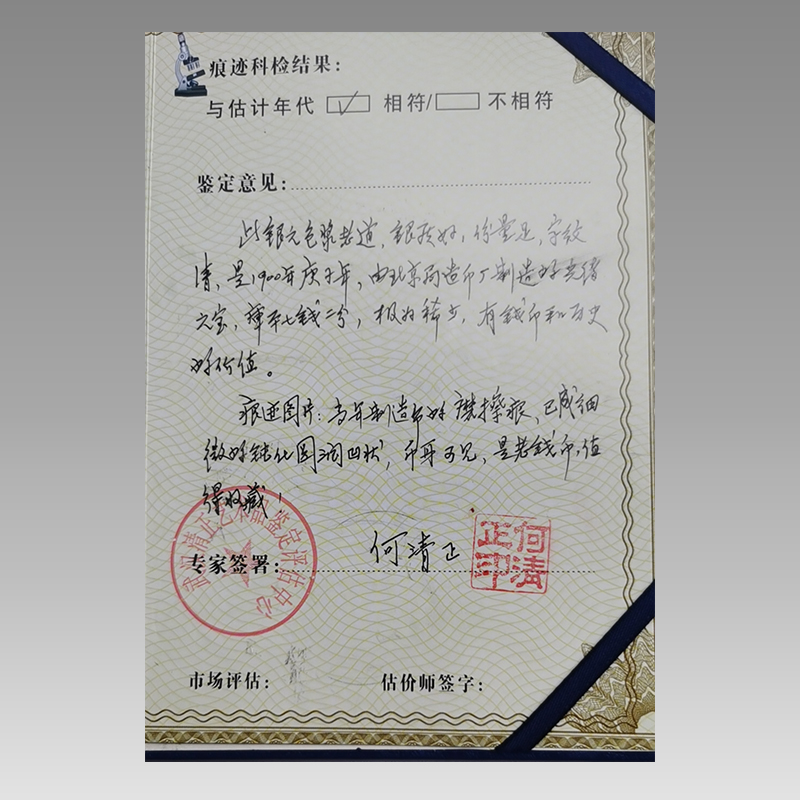 痕迹科检结果:
与估计年代 ☑ 相符/□ 不相符
鉴定意见:
此银元包浆老道,银质好,份量足,字纹
清,是1900年庚子年,由北京局造币厂制造的光绪
元宝,库平七钱二分,极为稀少,有钱币和历史
的价值。
痕迹图片:当年制造币的磨擦痕,已成细
微的钝化圆润凹状,币身可见,是老钱币,值
得收藏!
专家签署: 何清正
何清正印
武汉清正艺术品鉴定评估中心
市场评估: 估价师签字: